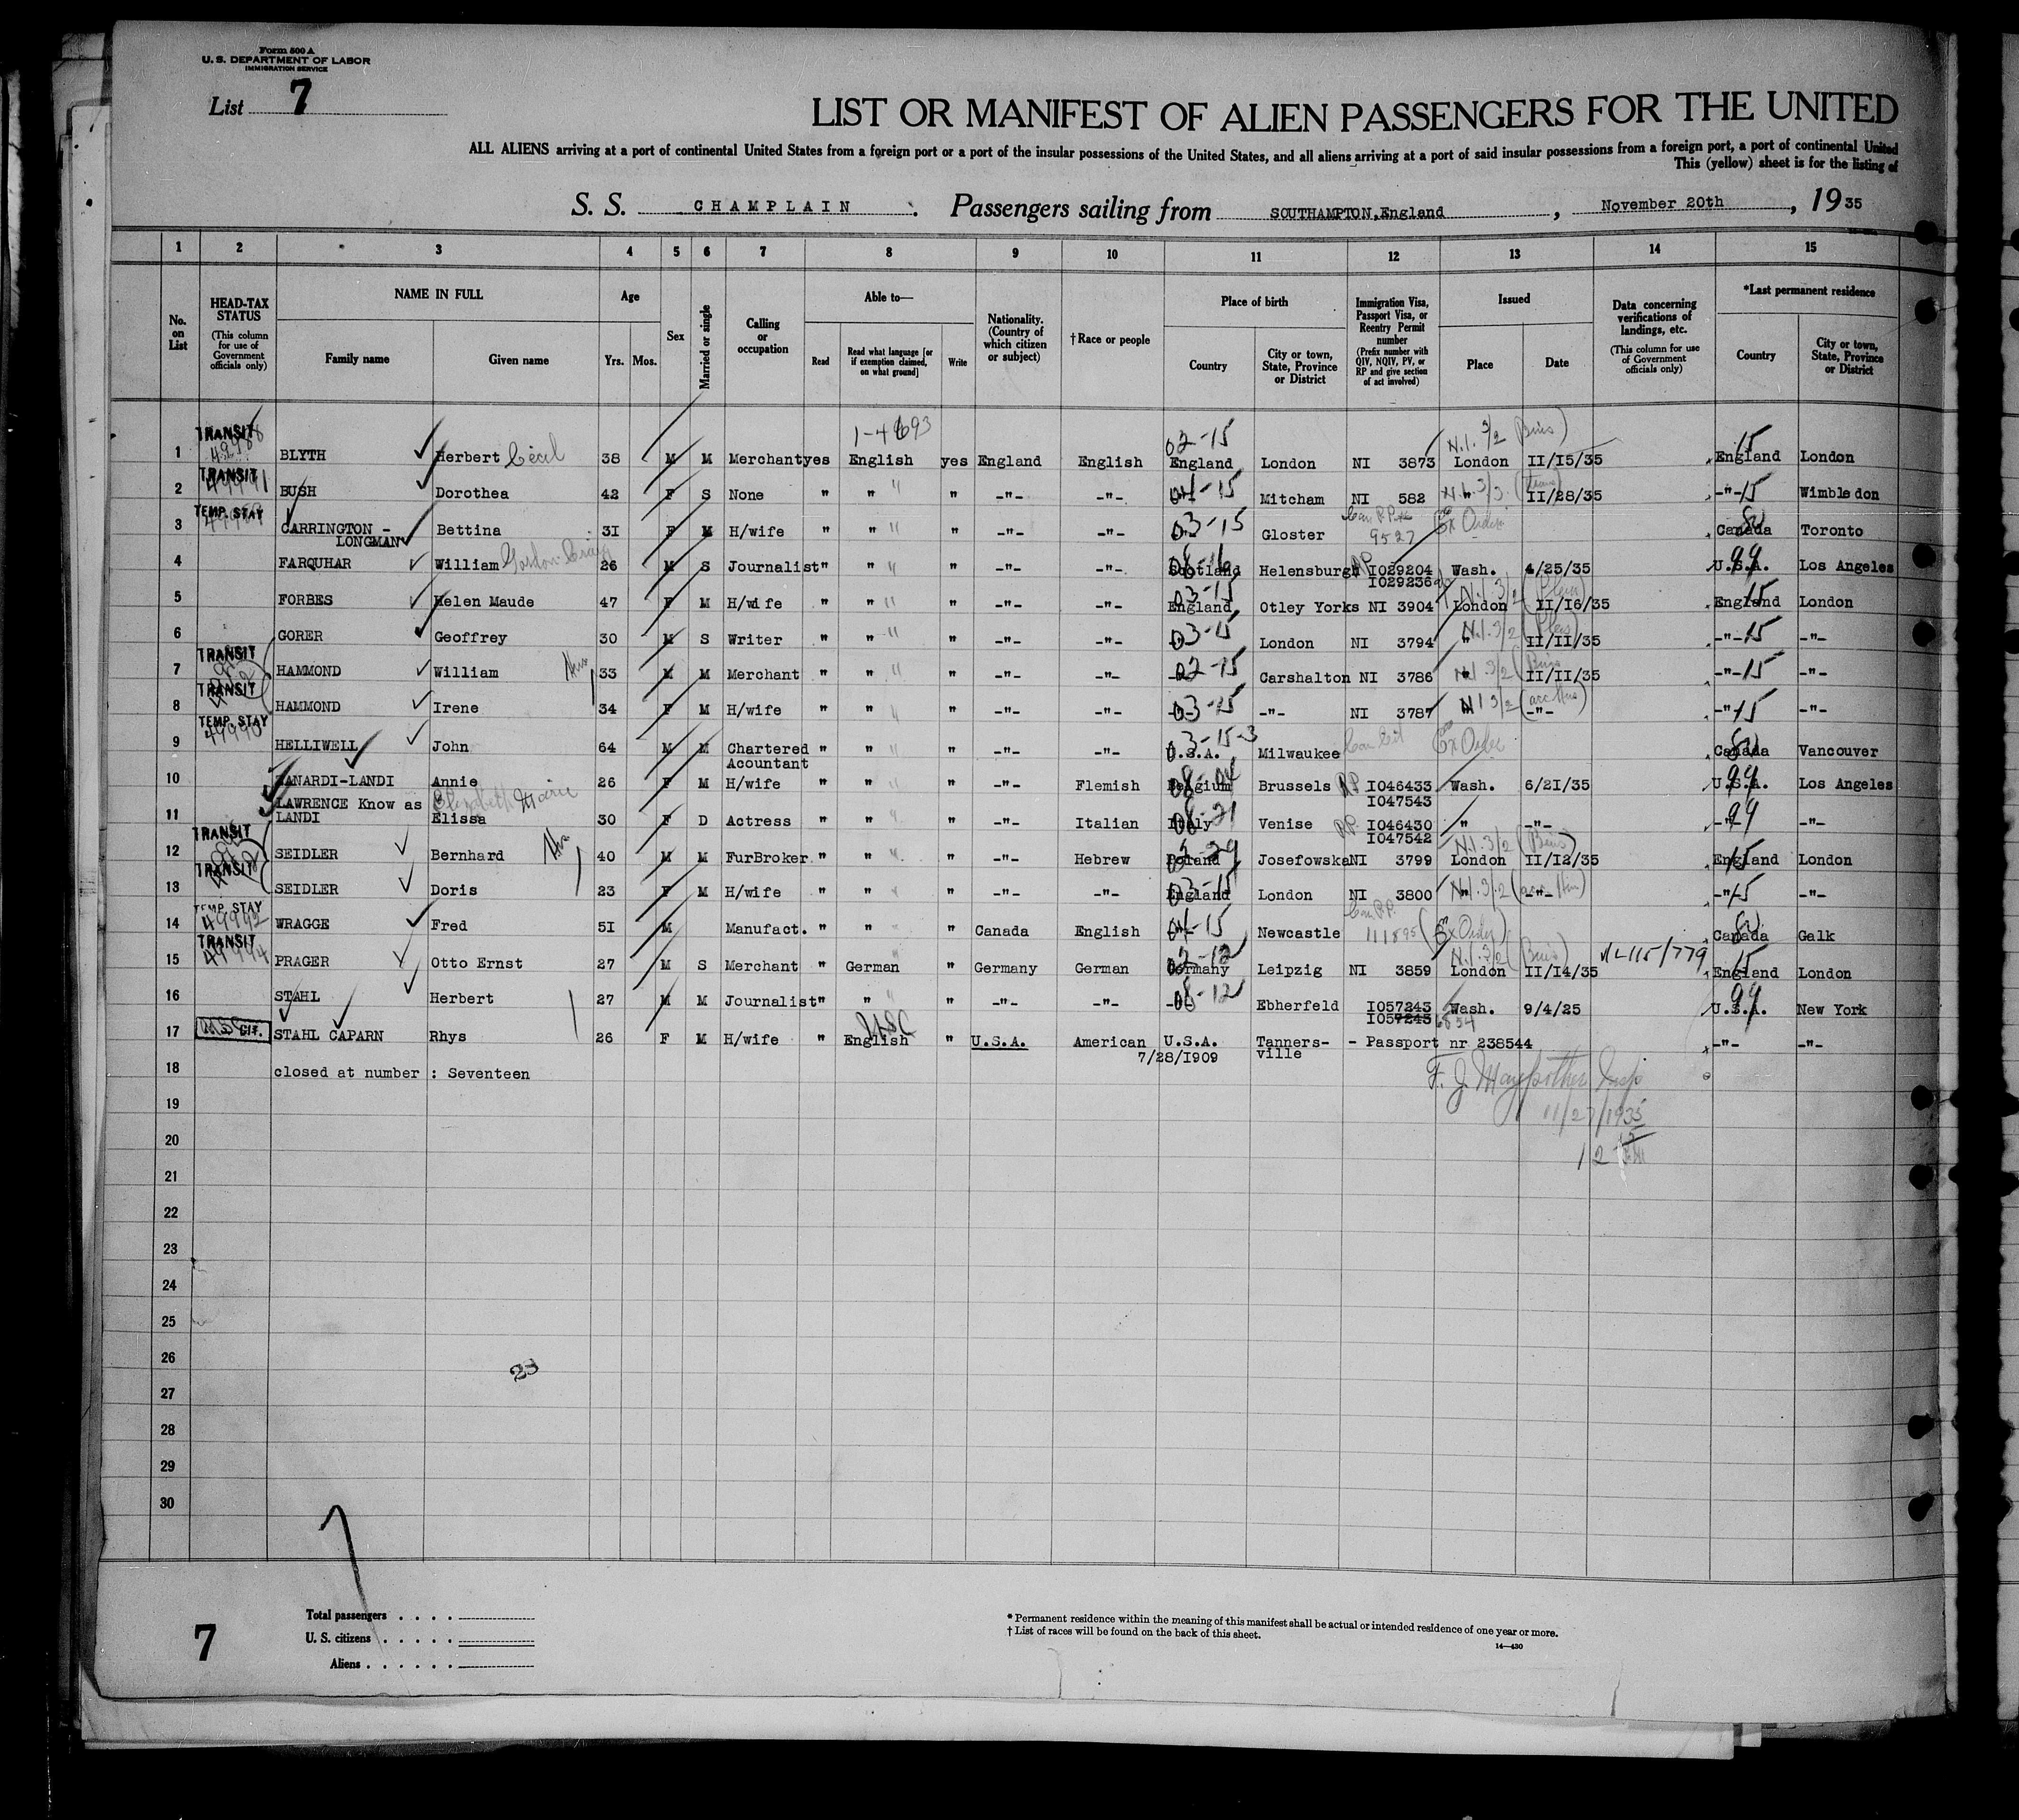 Form 500 A
U. S. DEPARTMENT OF LABOR
IMMIGRATION SERVICE
List 7
LIST OR MANIFEST OF ALIEN PASSENGERS FOR THE UNITED
ALL ALIENS arriving at a port of continental United States from a foreign port or a port of the insular possessions of the United States, and all aliens arriving at a port of said insular possessions from a foreign port, a port of continental United
This (yellow) sheet is for the listing of
S. S. CHAMPLAIN. Passengers sailing from SOUTHAMPTON, England, November 20th, 1935
1 2 3 4 5 6 7 8 9 10 11 12 13 14 15
No. on List
HEAD-TAX STATUS (This column for use of Government officials only)
NAME IN FULL
Family name Given name
Age
Yrs. Mos.
Sex
Married or single
Calling or occupation
Able to—
Read
Read what language [or if exemption claimed, on what ground]
Write
Nationality. (Country of which citizen or subject)
†Race or people
Place of birth
Country
City or town, State, Province or District
Immigration Visa, Passport Visa, or Reentry Permit number (Prefix number with QIV, NQIV, PV, or RP and give section of act involved)
Issued
Place Date
Data concerning verifications of landings, etc. (This column for use of Government officials only)
*Last permanent residence
Country
City or town, State, Province or District
1-4693 02-15 N.I. 3/2 (Bus) 15
1 TRANSIT 49988 BLYTH Herbert Cecil 38 M M Merchant yes English yes England English England London NI 3873 London II/I5/35 England London
2 TRANSIT 49991 BUSH Dorothea 42 F S None " " " -"- -"- 04-15 Mitcham NI 582 N.I. 3/3 " II/28/35 -"- 15 Wimbledon
3 TEMP. STAY CARRINGTON - Bettina 3I F M H/wife " " " -"- -"- 03-15 Gloster Can P.P. 9527 Ex Order Canada Toronto
LONGMAN
4 FARQUHAR William Gordon Craig 26 M S Journalist " " " -"- -"- Scotland Helensburgh RP I029204 Wash. 4/25/35 U.S.A. 99 Los Angeles
I029236
5 FORBES Helen Maude 47 F M H/wife " " " -"- -"- 03-15 England Otley Yorks NI 3904 N.I. 3/2 (Pleas) London II/I6/35 England 15 London
6 GORER Geoffrey 30 M S Writer " " " -"- -"- 03-15 London NI 3794 N.I. 3/2 (Pleas) " II/II/35 -"- 15 -"-
7 TRANSIT HAMMOND William 33 M M Merchant " " " -"- -"- 02-15 Carshalton NI 3786 N.I. 3/2 (Bus " II/II/35 -"- 15 -"-
8 TRANSIT HAMMOND Irene 34 F M H/wife " " " -"- -"- 03-15 -"- NI 3787 N I 3/2 (acc Hus) " -"- -"- 15 -"-
9 TEMP. STAY 49990 HELLIWELL John 64 M M Chartered " " " -"- -"- 03-15-3 U.S.A. Milwaukee Can Cit Ex Order Canada Vancouver
Acountant
10 ZANARDI-LANDI Annie 26 F M H/wife " " " -"- Flemish Belgium Brussels RP I046433 Wash. 6/2I/35 U.S.A. 99 Los Angeles
LAWRENCE Know as Elizabeth Marie I047543
11 LANDI Elissa 30 F D Actress " " " -"- Italian Italy Venise RP I046430 " -"- -"- 99 -"-
I047542
12 TRANSIT SEIDLER Bernhard 40 M M FurBroker " " " -"- Hebrew Poland Josefowska NI 3799 N.I. 3/2 (Bus) London II/I2/35 England 15 London
13 TRANSIT SEIDLER Doris 23 F M H/wife " " " -"- -"- 03-15 England London NI 3800 N.I. 3/2 (acc Hus) " -"- -"- 15 -"-
14 TEMP. STAY 49992 WRAGGE Fred 5I M Manufact. " " " Canada English 04-15 Newcastle Can P.P. 111895 (Ex Order) Canada Galk
15 TRANSIT 49994 PRAGER Otto Ernst 27 M S Merchant " German " Germany German 02-12 Germany Leipzig NI 3859 N.I. 3/2 (Bus) London II/I4/35 VL-115/779 England 15 London
16 STAHL Herbert 27 M M Journalist " " " -"- -"- 08-12 Ebherfeld I057243 Wash. 9/4/25 U.S.A. 99 New York
I057243 6854
17 USC CIT. STAHL CAPARN Rhys 26 F M H/wife " USC English " U.S.A. American U.S.A. Tanners- - Passport nr 238544 -"- -"-
7/28/I909 ville
18 closed at number : Seventeen
F. J. Insp
11/27/1935
19
12
20
21
22
23
24
25
26
23
27
28
29
30
7
Total passengers . . . .
U. S. citizens . . . . .
Aliens . . . . . .
* Permanent residence within the meaning of this manifest shall be actual or intended residence of one year or more.
† List of races will be found on the back of this sheet.
14—430